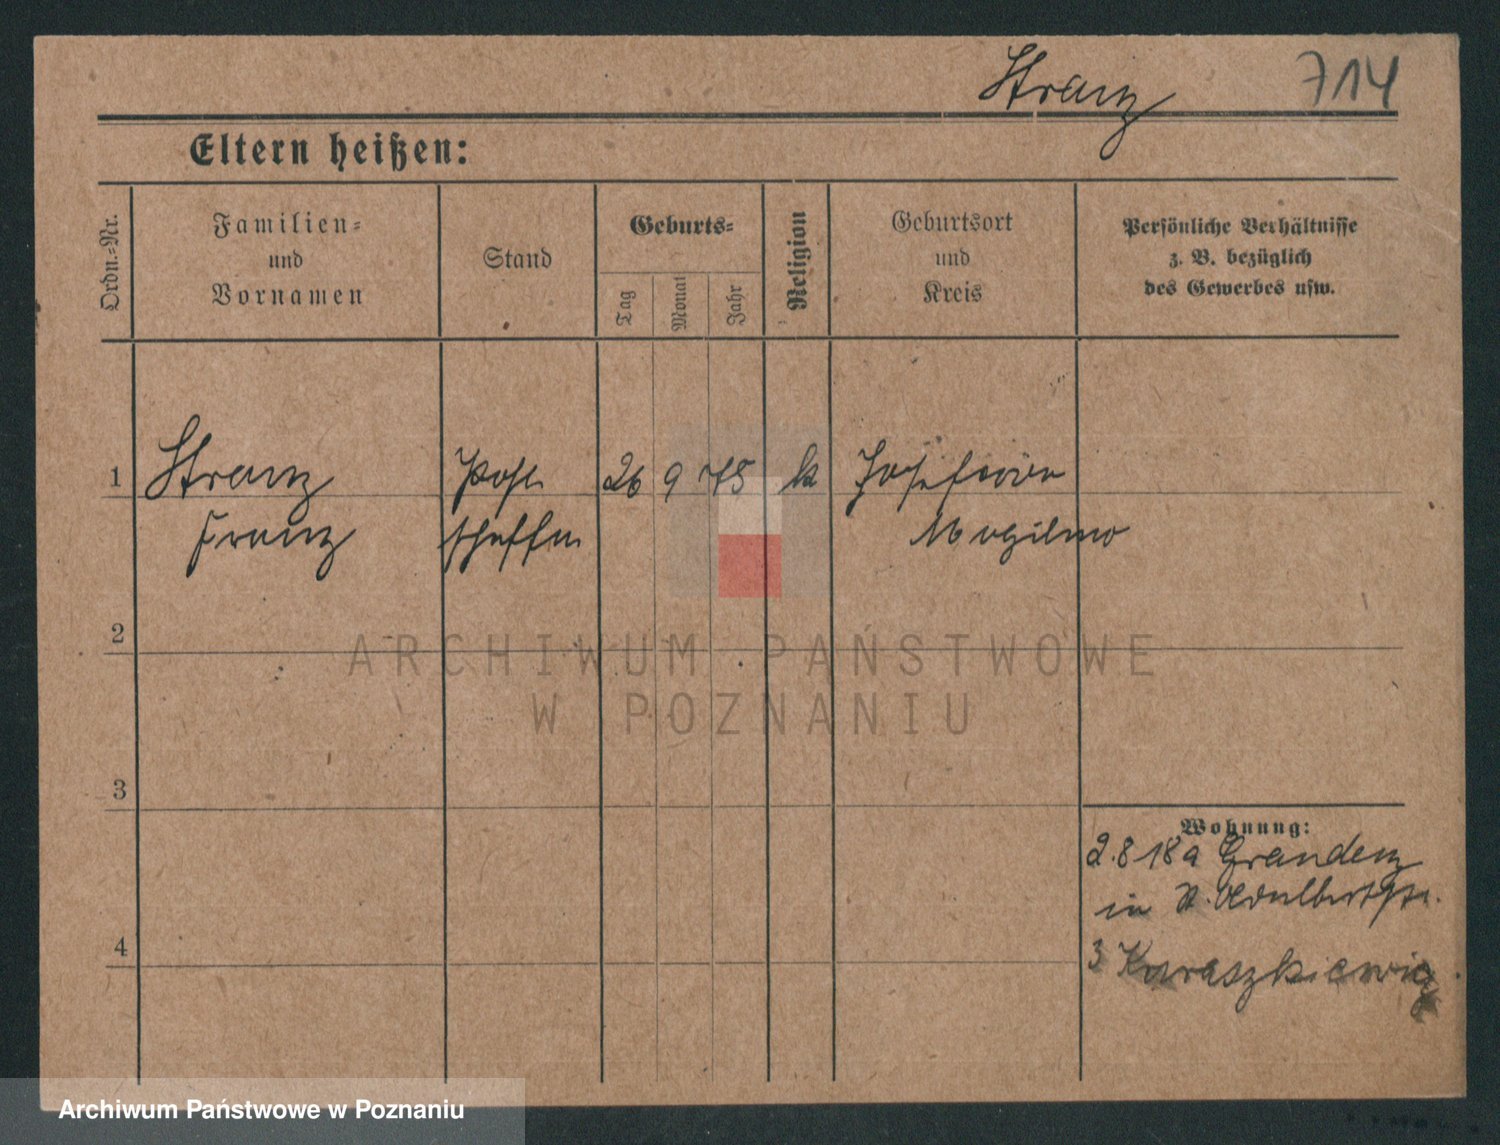 Stranz 714
Eltern heißen:
Ordn.-Nr.
Familien-
und
Vornamen
Stand
Geburts-
Tag
Monat
Jahr
Religion
Geburtsort
und
Kreis
Persönliche Verhältnisse
z. B. bezüglich
des Gewerbes usw.
1 Stranz Post 26 9 75 k Josefowo
Franz schaffn
Mogilno
2
3
4
Wohnung:
2.8.18 a Graudenz
in St. Adalbertstr.
3 Karaszkiewicz
ARCHIWUM PAŃSTWOWE
W POZNANIU
Archiwum Państwowe w Poznaniu